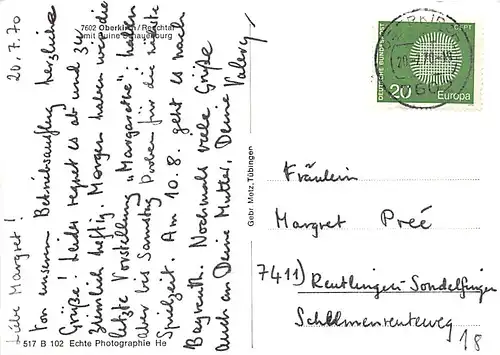 7602 Oberkirch/Renchtal
mit Ruine Schauenburg
20.7.70
Liebe Margret!
Von unserem Betriebsausflug herzliche
Grüße! Leider regnet es ab und zu
ziemlich heftig. Morgen haben wir die
letzte Vorstellung „Margarethe“; haben
aber bis Samstag Proben für die nächste
Spielzeit. Am 10.8. geht es nach
Bayreuth. Nochmals viele Grüße
auch an Deine Mutter, Deine
517 B 102 Echte Photographie
Gebr. Metz, Tübingen
DEUTSCHE BUNDESPOST
CEPT
20 Europa
Fräulein
Margret Preé
7411) Reutlingen-Sondelfingen
Schlmenreuteweg
18